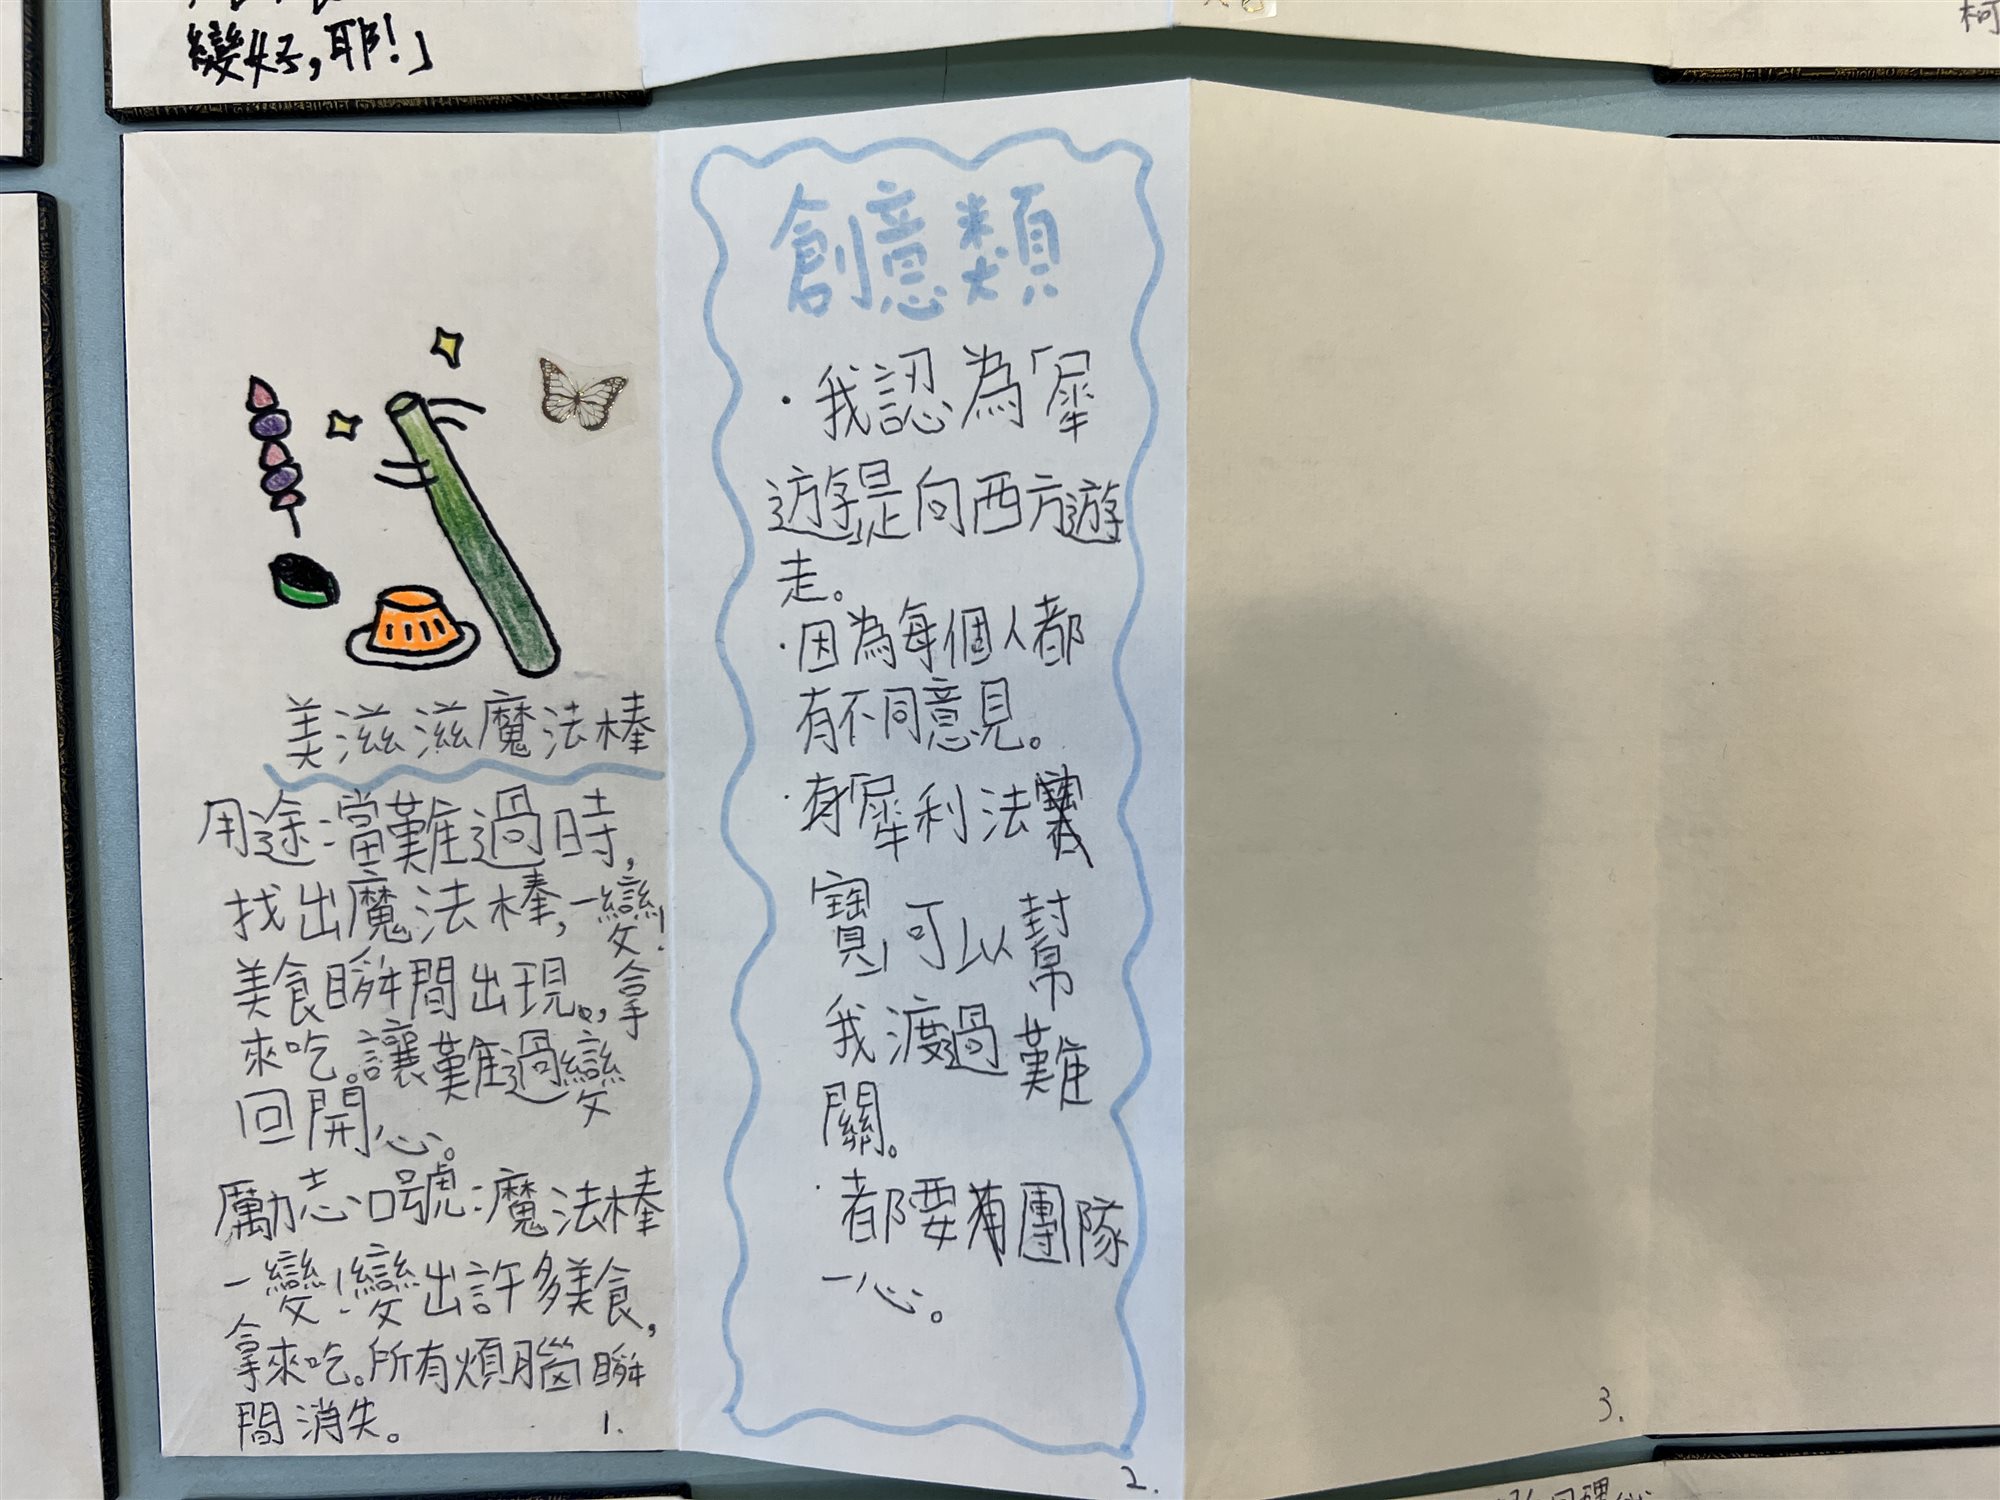 變好,耶!」
柯
美滋滋魔法棒
用途:當難過時,
找出魔法棒,一變!
美食瞬間出現。,拿
來吃。讓難過變
回開心。
厲志口號:魔法棒
一變!變出許多美食,
拿來吃。所有煩腦瞬
間消失。
1.
創意類
·我認為「犀
遊」是向西方遊
走。
·因為每個人都
有不同意見。
·有「犀利法
寶」可以幫
我渡過難
關。
·都要有團隊
一心。
2.
3.